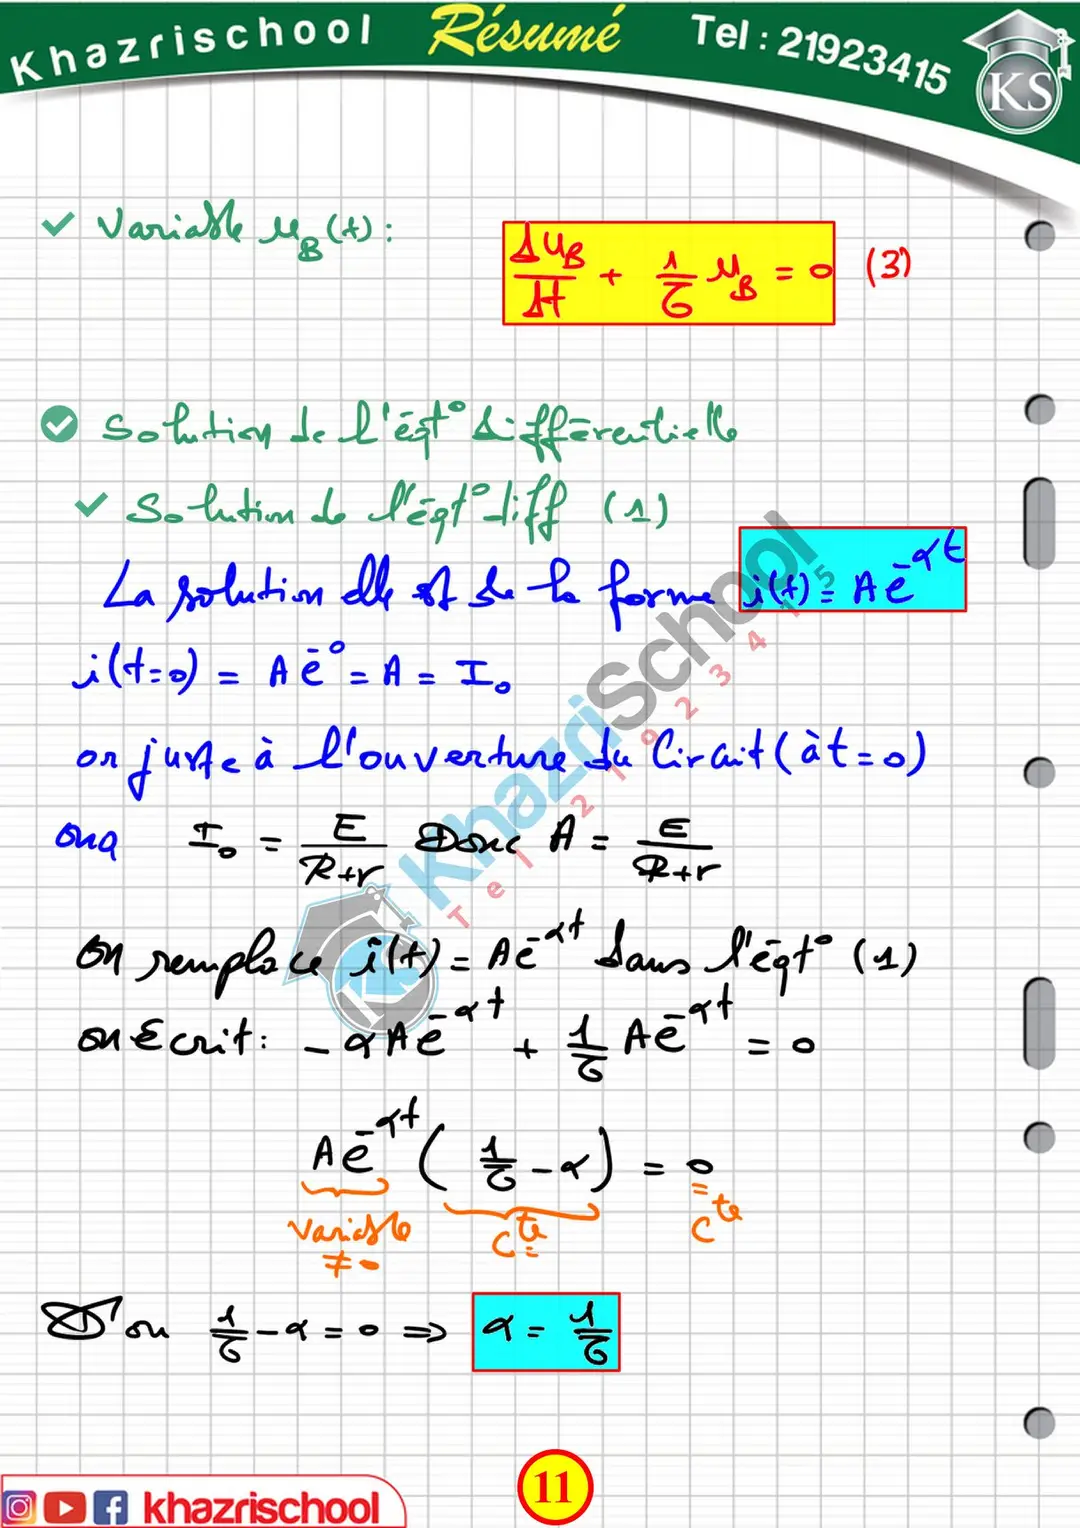 Khazrischool Résumé Tel : 21923415
KS
✓ Variable u_B(t) : du_B/dt + 1/τ u_B = 0 (3)
Solution de l'éqt° différentielle
✓ Solution de l'éqt° diff (1)
La solution elle est de la forme i(t) = A e^-αt
i(t=0) = A e^-0 = A = I₀
or juste à l'ouverture du Circuit (à t = 0)
ona I₀ = E/(R+r) Donc A = E/(R+r)
on remplace i(t) = A e^-αt dans l'éqt° (1)
on Ecrit : - α A e^-αt + 1/τ A e^-αt = 0
A e^-αt ( 1/τ - α ) = 0
Variable ≠ 0 C^te = = C^te
D'ou 1/τ - α = 0 ⇒ α = 1/τ
KhazriSchool
Tel 21923415
KS
11
khazrischool